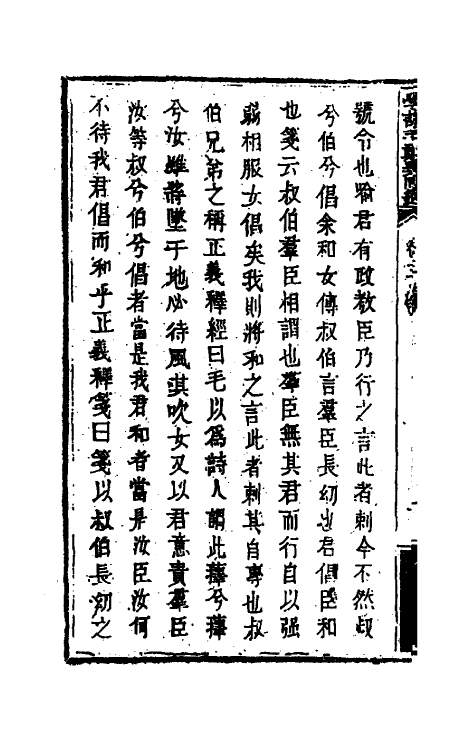 號令也喻君有政教臣乃行之言此者刺今不然叔
兮伯兮倡余和女傳叔伯言羣臣長幼也君倡臣和
也箋云叔伯羣臣相謂也羣臣無其君而行自以强
弱相服女倡矣我則將和之言此者刺其自專也叔
伯兄弟之稱正義釋經曰毛以爲詩人謂此蘀兮蘀
兮汝雖將墜于地必待風其吹女又以君意責羣臣
汝等叔兮伯兮倡者當是我君和者當是汝臣汝何
不待我君倡而和乎正義釋箋曰箋以叔伯長幼之